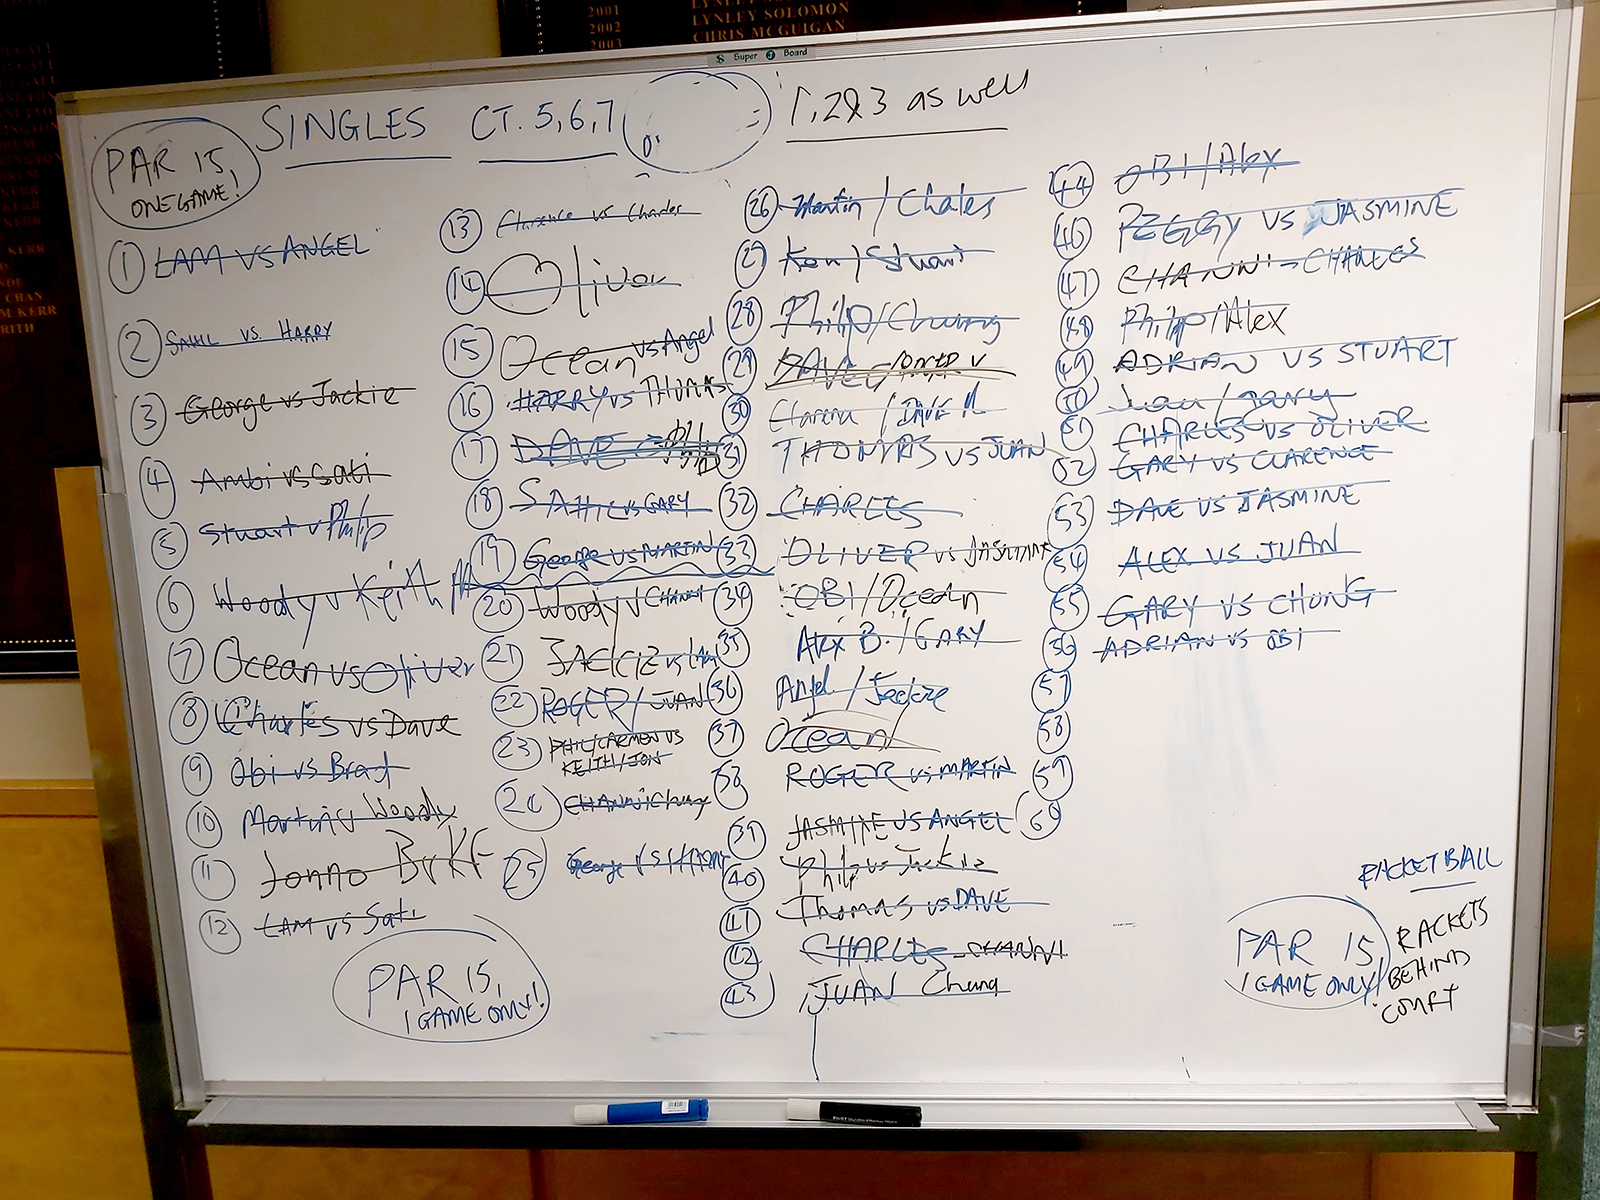 2001
2002
2003
LYNLEY SOLOMON
CHRIS MCGUIGAN
Super Board
SINGLES CT. 5,6,7
1,2&3 as well
PAR 15
ONE GAME!
1 LAM VS ANGEL
2 SAHIL VS. HARRY
3 George vs Jackie
4 Ambi vs Sati
5 Stuart v Philip
6 Woody v Keith
7 Ocean vs Oliver
8 Charles vs Dave
9 Obi vs Brad
10 Martin v Woody
11 Jonno B v KF
12 LAM vs Sati
PAR 15,
1 GAME ONLY!
13 Clarence vs Charles
14 Oliver
15 Ocean vs Angel
16 HARRY vs THOMAS
17 DAVE
18 SAHIL vs GARY
19 George vs MARTIN
20 Woody v CHANNI
21 JACKIE vs LAM
22 ROGER / JUAN
23 PHIL/CARMEN VS
KEITH/JON
24 CHANNI Chung
25 George VS HARRY
26 Martin / Charles
27 Ken / Stuart
28 Philip/Chung
29 DAVE
30 Clarence / DAVE M
31 THOMAS VS JUAN
32 CHARLES
33 OLIVER vs JASMINE
34 OBI/Ocean
35 Alex B. / GARY
36 Angel / Jackie
37 Ocean/
38 ROGER vs MARTIN
39 JASMINE VS ANGEL
40 Philip vs Jackie
41 Thomas vs DAVE
42 CHARLES - CHANNI
43 JUAN Chung
44 OBI / Alex
46 PEGGY VS JASMINE
47 CHANNI - CHARLES
48 Philip/Alex
49 ADRIAN VS STUART
50 Juan / Gary
51 CHARLES VS OLIVER
52 GARY VS CLARENCE
53 DAVE VS JASMINE
54 ALEX VS JUAN
55 GARY VS CHUNG
56 ADRIAN VS OBI
57
58
59
60
RACKETBALL
RACKETS
BEHIND
COURT
PAR 15
1 GAME ONLY!
PILOT